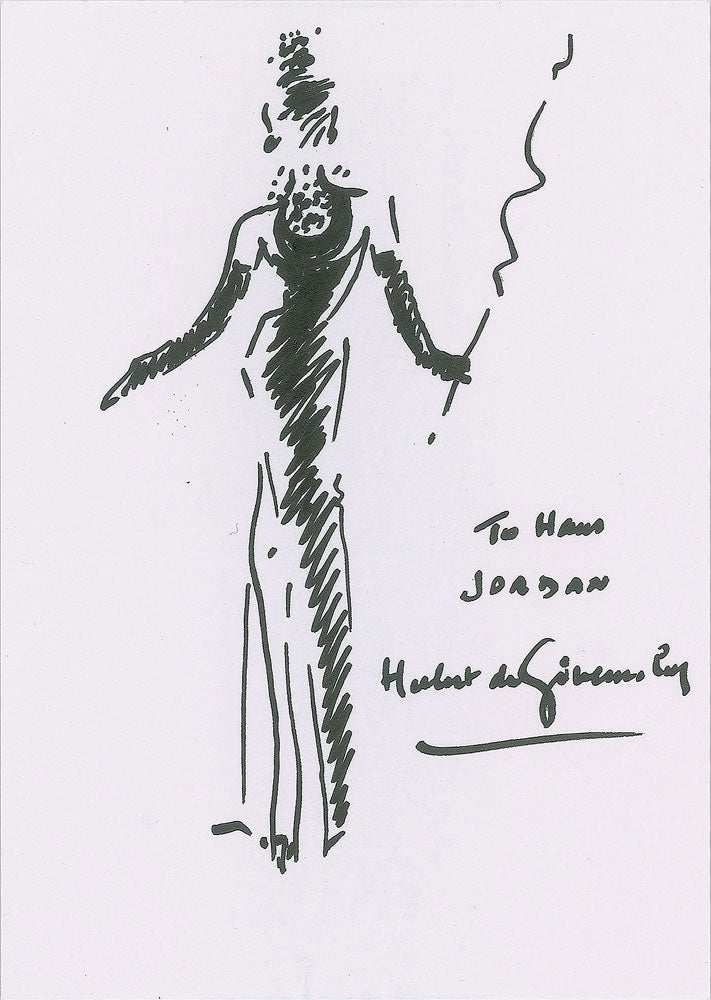 To Hans
JORDAN
Hubert de Givenchy